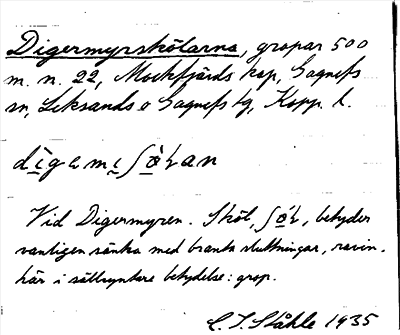 Digermyrskölarna, gropar 500
m. n. 22, Mockfjärds kap, Gagnefs
sn, Leksands o Gagnefs tg, Kopp. l.
Vid Digermyren. Sköl, betyder
vanligen sänka med branta sluttningar, ravin.
här i sällsyntare betydelse: grop.
C. I. Ståhle 1935